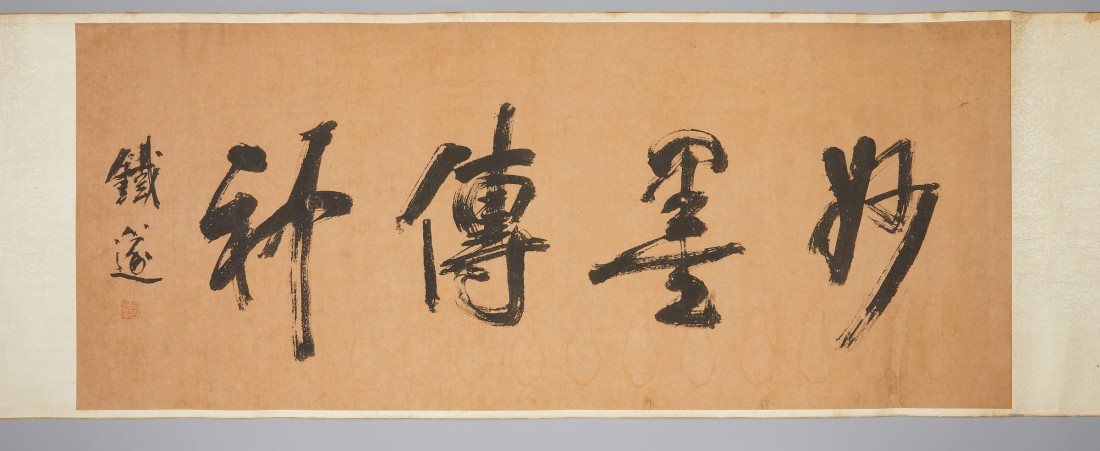 妙墨傳神
鐵邃